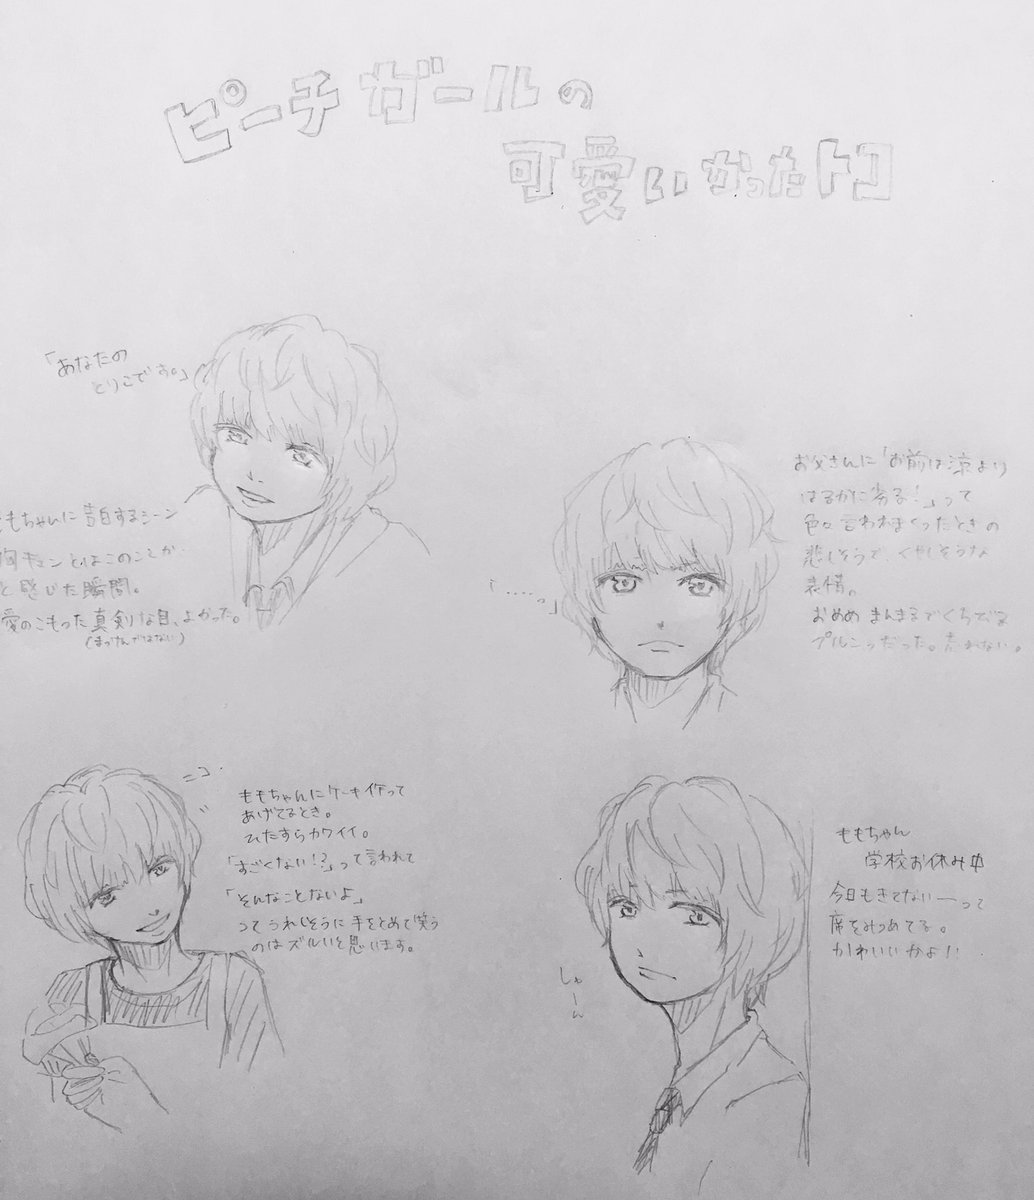 ピーチガールの
可愛いかったトコ
「あなたの
とりこです。」
ももちゃんに告白するシーン
胸キュンとはこのことか
と感じた瞬間。
愛のこもった真剣な目、よかった。
(まっけんではない)
お父さんに「お前は涼より
はるかに劣る!」って
色々言われまくったときの
悲しそうで、くやしそうな
表情。
おめめまんまるでくちびる
プルンってだった。
「……っ」
ニコ
ももちゃんにケーキ作って
あげてるとき。
ひたすらカワイイ。
「すごくない!?」って言われて
「そんなことないよ」
ってうれしそうに手をとめて笑う
のはズルいと思います。
ももちゃん
学校お休み中
今日もきてない―って
席をみつめてる。
かわいいかよ!!
しゅーん